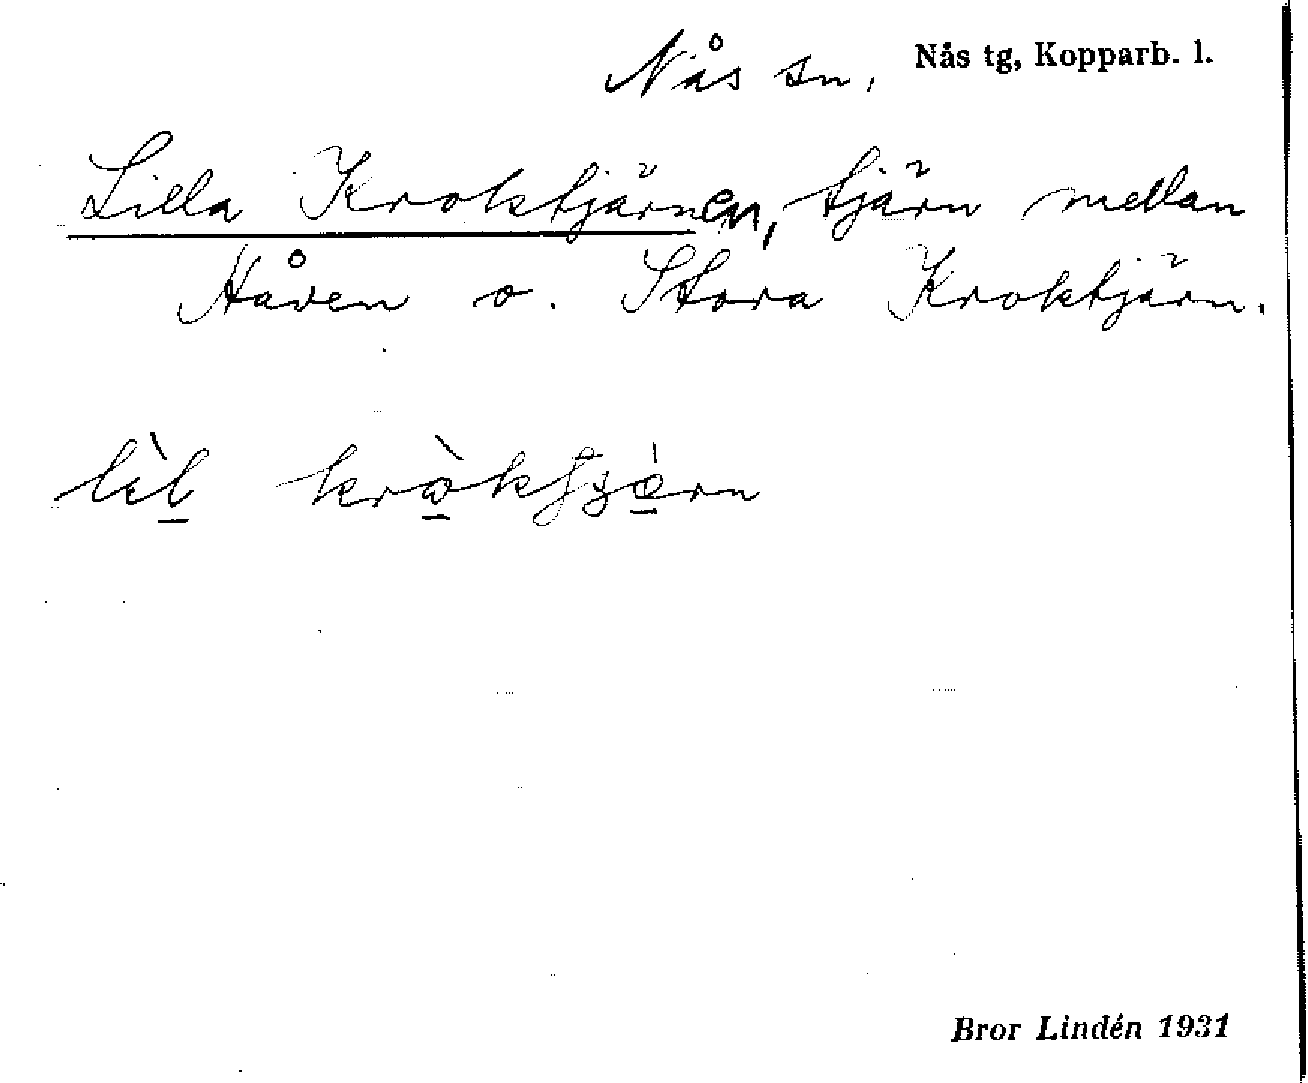 Nås sn. Nås tg, Kopparb. l.
Lilla Kroktjärnen, tjärn mellan
Håven o. Stora Kroktjärn.
Bror Lindén 1931